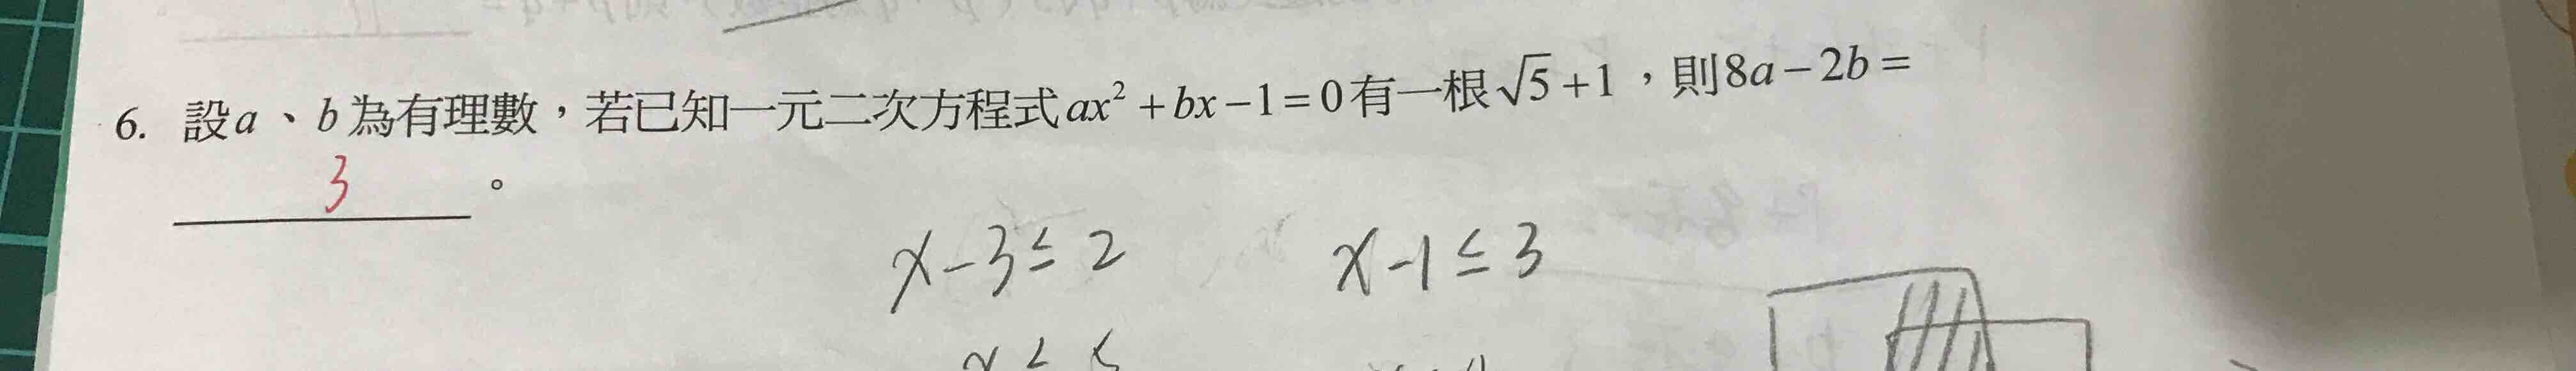 6. 設a、b為有理數，若已知一元二次方程式ax²+bx−1=0有一根√5+1，則8a−2b=
3。
x−3≤2  x−1≤3